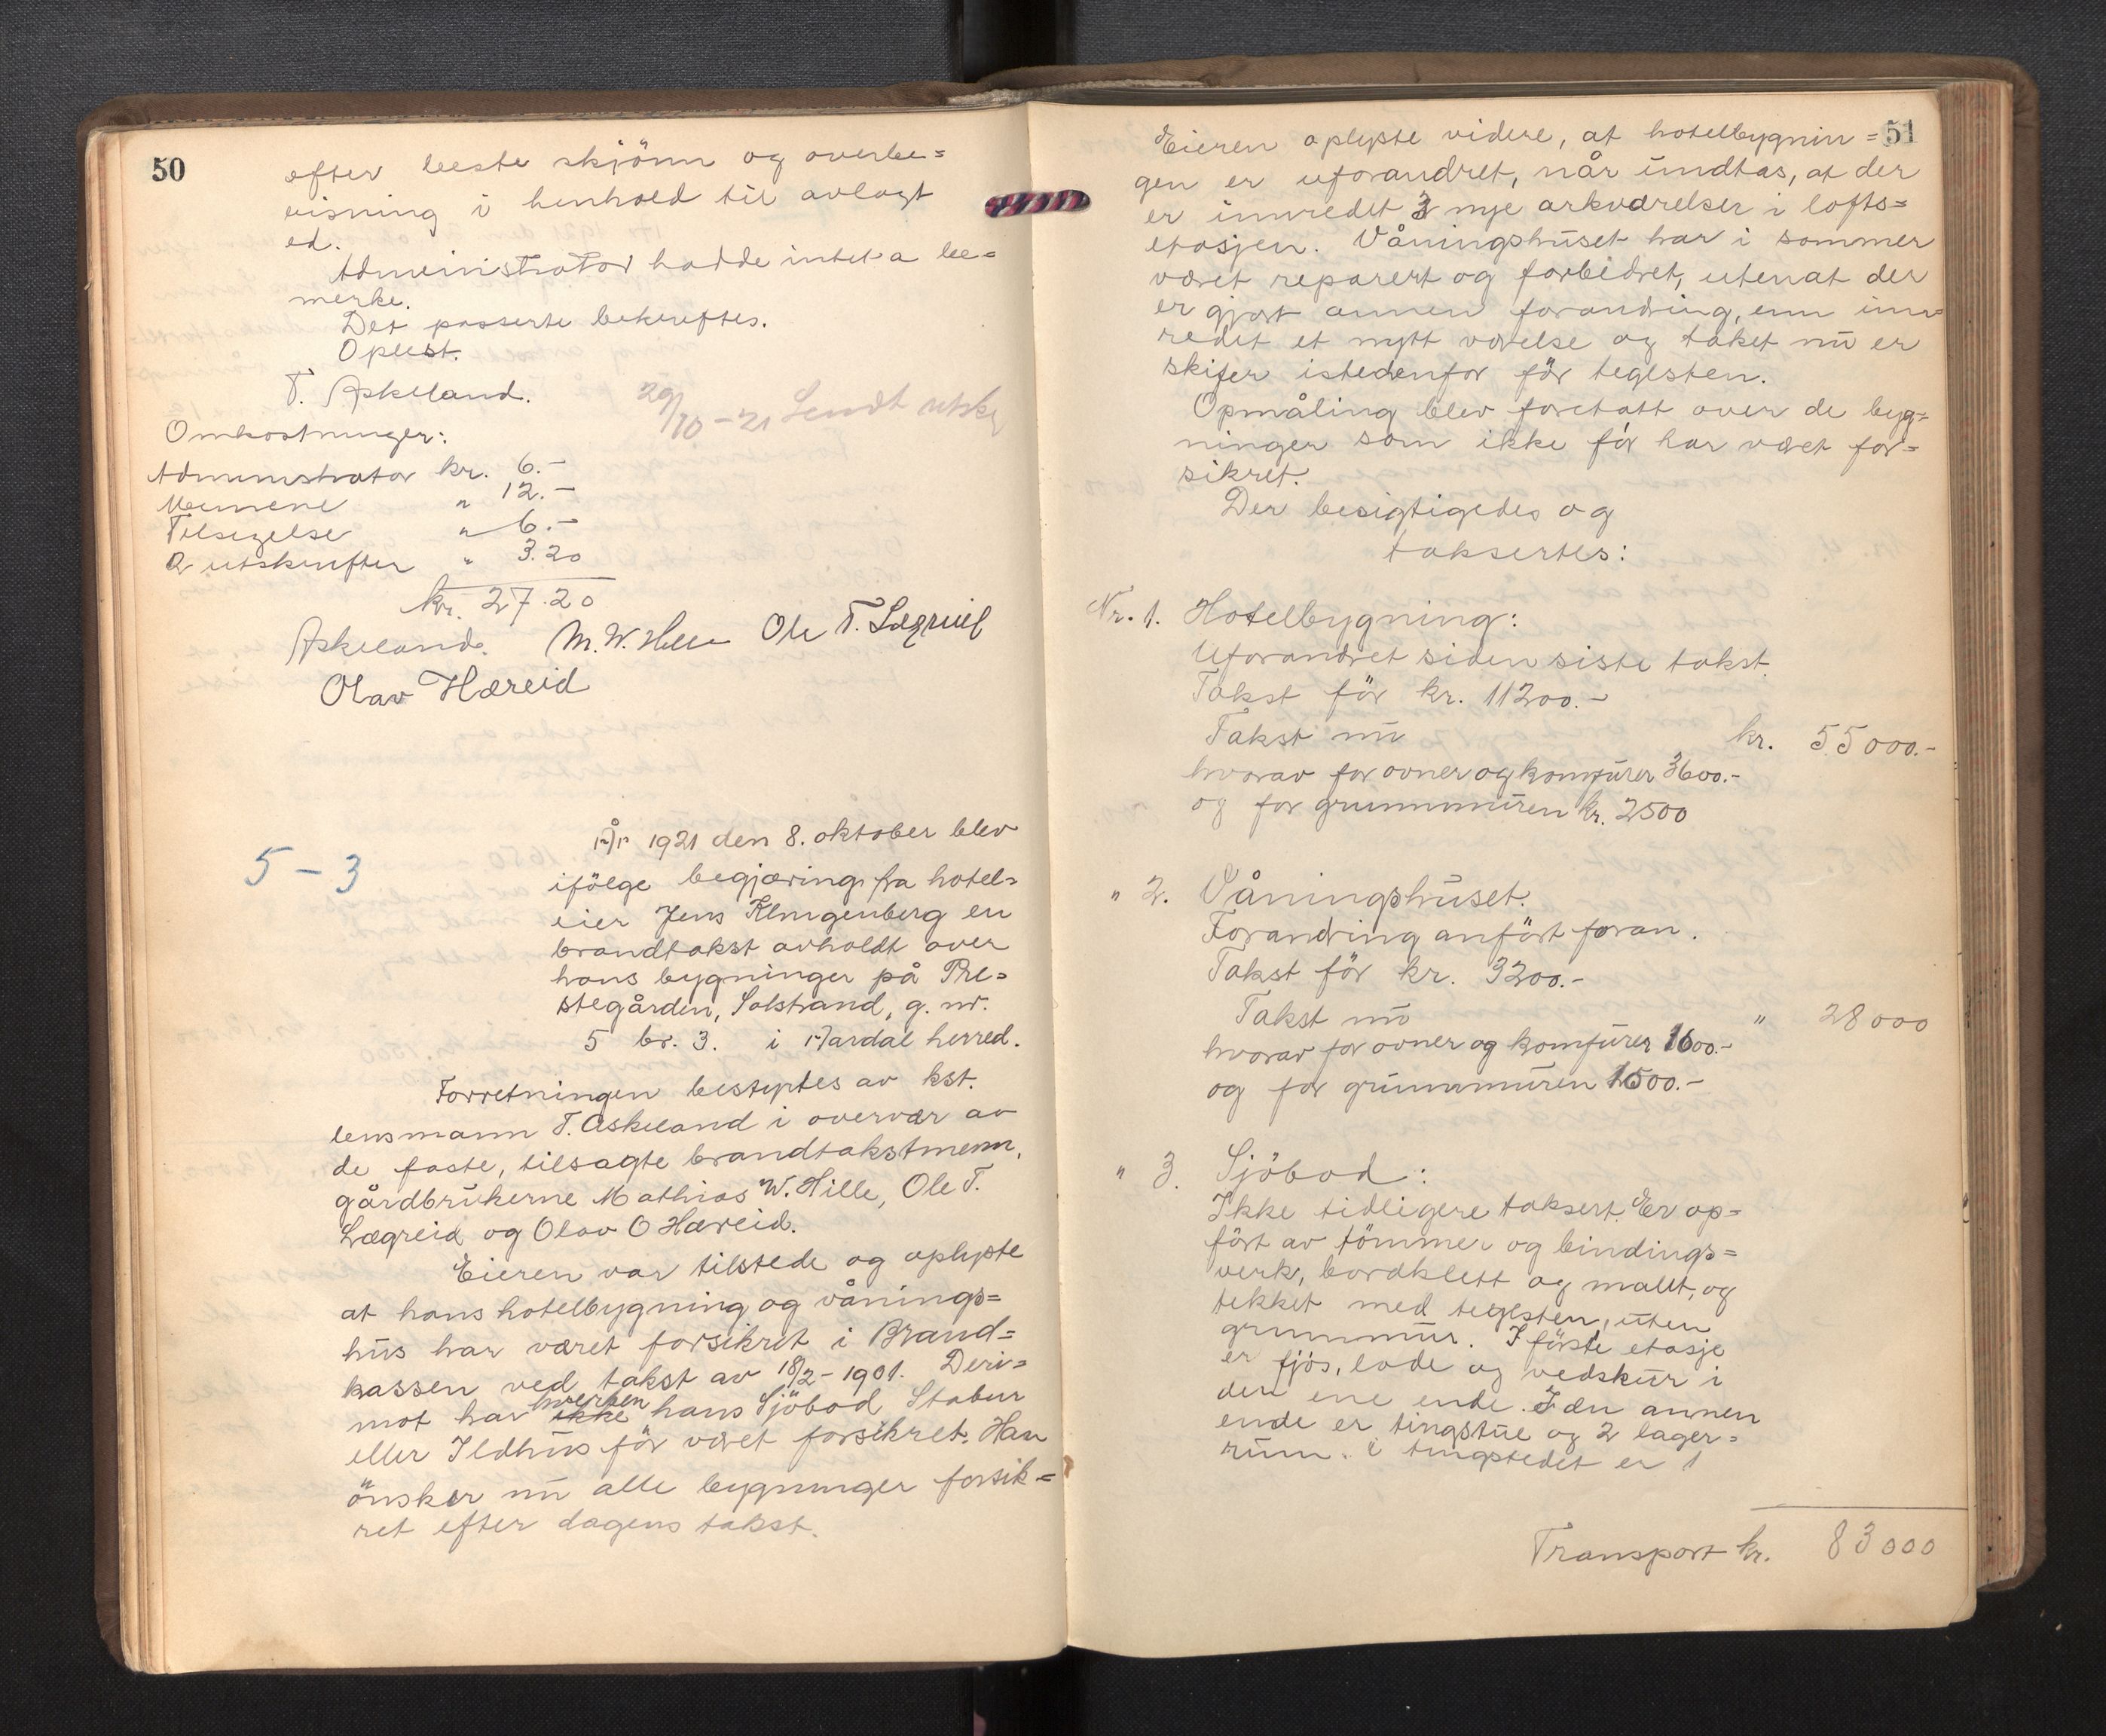 50
efter beste skjönn og overbe=
visning i henhold til avlagt
ed.
Administrator hadde intet a be=
merke.
Det passerte bekreftes.
Oplest.
T. Askeland.
29/10-21 Sendt utskr
Omkostninger:
Administrator kr. 6.-
Mennene " 12.-
Tilsigelse " 6.-
2 utskrifter " 3.20
kr. 27.20
Askeland. M. W. Hille Ole T. Lægreid
Olav Hæreid
5-3
År 1921 den 8. oktober blev
ifölge begjæring fra hotel=
eier Jens Klingenberg en
brandtakst avholdt over
hans bygninger på Pre=
stegården, Solstrand, g. nr.
5 br. 3. i Aardal herred.
Forretningen bestyrtes av kst.
lensmann T. Askeland i overvær av
de faste, tilsagte brandtakstmenn,
gårdbrukerne Mathias W. Hille, Ole T.
Lægreid og Olav O Hæreid.
Eieren var tilstede og oplyste
at hans hotelbygning og vånings=
hus har været forsikret i Brand=
kassen ved takst av 18/2-1901. Deri=
mot har ikke hverken hans Sjöbod Stabur
eller Ildhus för været forsikret. Han
önsker nu alle bygninger forsik=
ret efter dagens takst.
51
Eieren oplyste videre, at hotelbygnin=
gen er uforandret, når undtas, at der
er innredet 3 nye arkværelser i lofts=
etasjen. Våningshuset har i sommer
været reparert og forbedret, utenat der
er gjort annen forandring, enn inn=
redet et nytt værelse og taket nu er
skifer istedenfor för teglsten.
Opmåling blev foretatt over de byg=
ninger som ikke för har været for=
sikret.
Der besigtigedes og
taksertes:
Nr. 1. Hotelbygning:
Uforandret siden siste takst.
Takst för kr. 11200.-
Takst nu kr. 55000.-
hvorav for ovner og komfurer 3600.-
og for grunnmuren kr. 2500
" 2. Våningshuset.
Forandring anfört foran.
Takst för kr. 3200.-
Takst nu " 28000
hvorav for ovner og komfurer 1600.-
og for grunnmuren 1500.-
" 3. Sjöbod:
Ikke tidligere taksert. Er op=
fört av tömmer og bindings=
verk, bordklett og malt, og
tekket med teglsten, uten
grunnmur. I förste etasje
er fjös, lade og vedskur i
den ene ende. I den annen
ende er tingstue og 2 lager=
rum. i tingstedet er 1
Transport kr. 83000